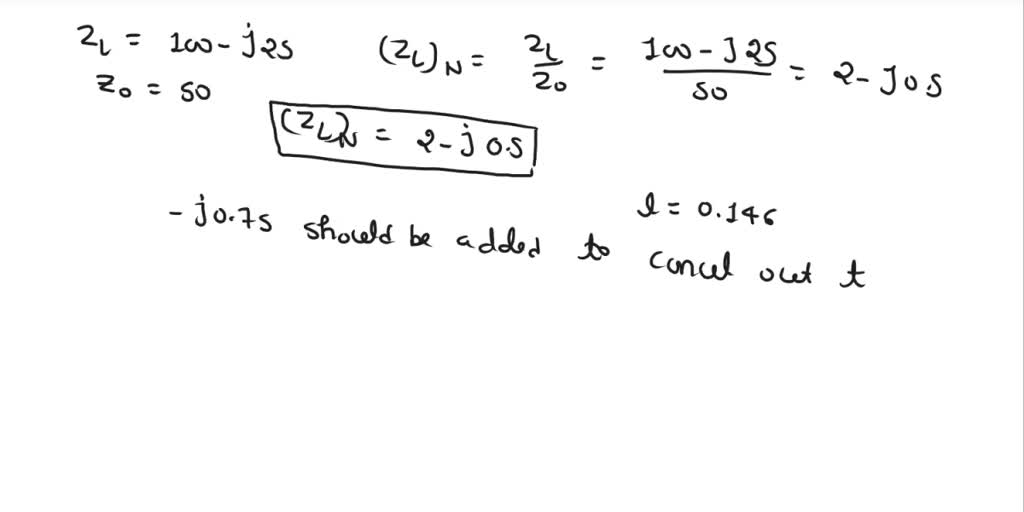 Z_L = 100 - j25
(Z_L)_N = Z_L / Z_0 = 100 - J25 / 50 = 2 - J05
Z_0 = 50
(Z_L)_N = 2 - j 0.5
l = 0.146
- j0.75 should be added to cancel out t